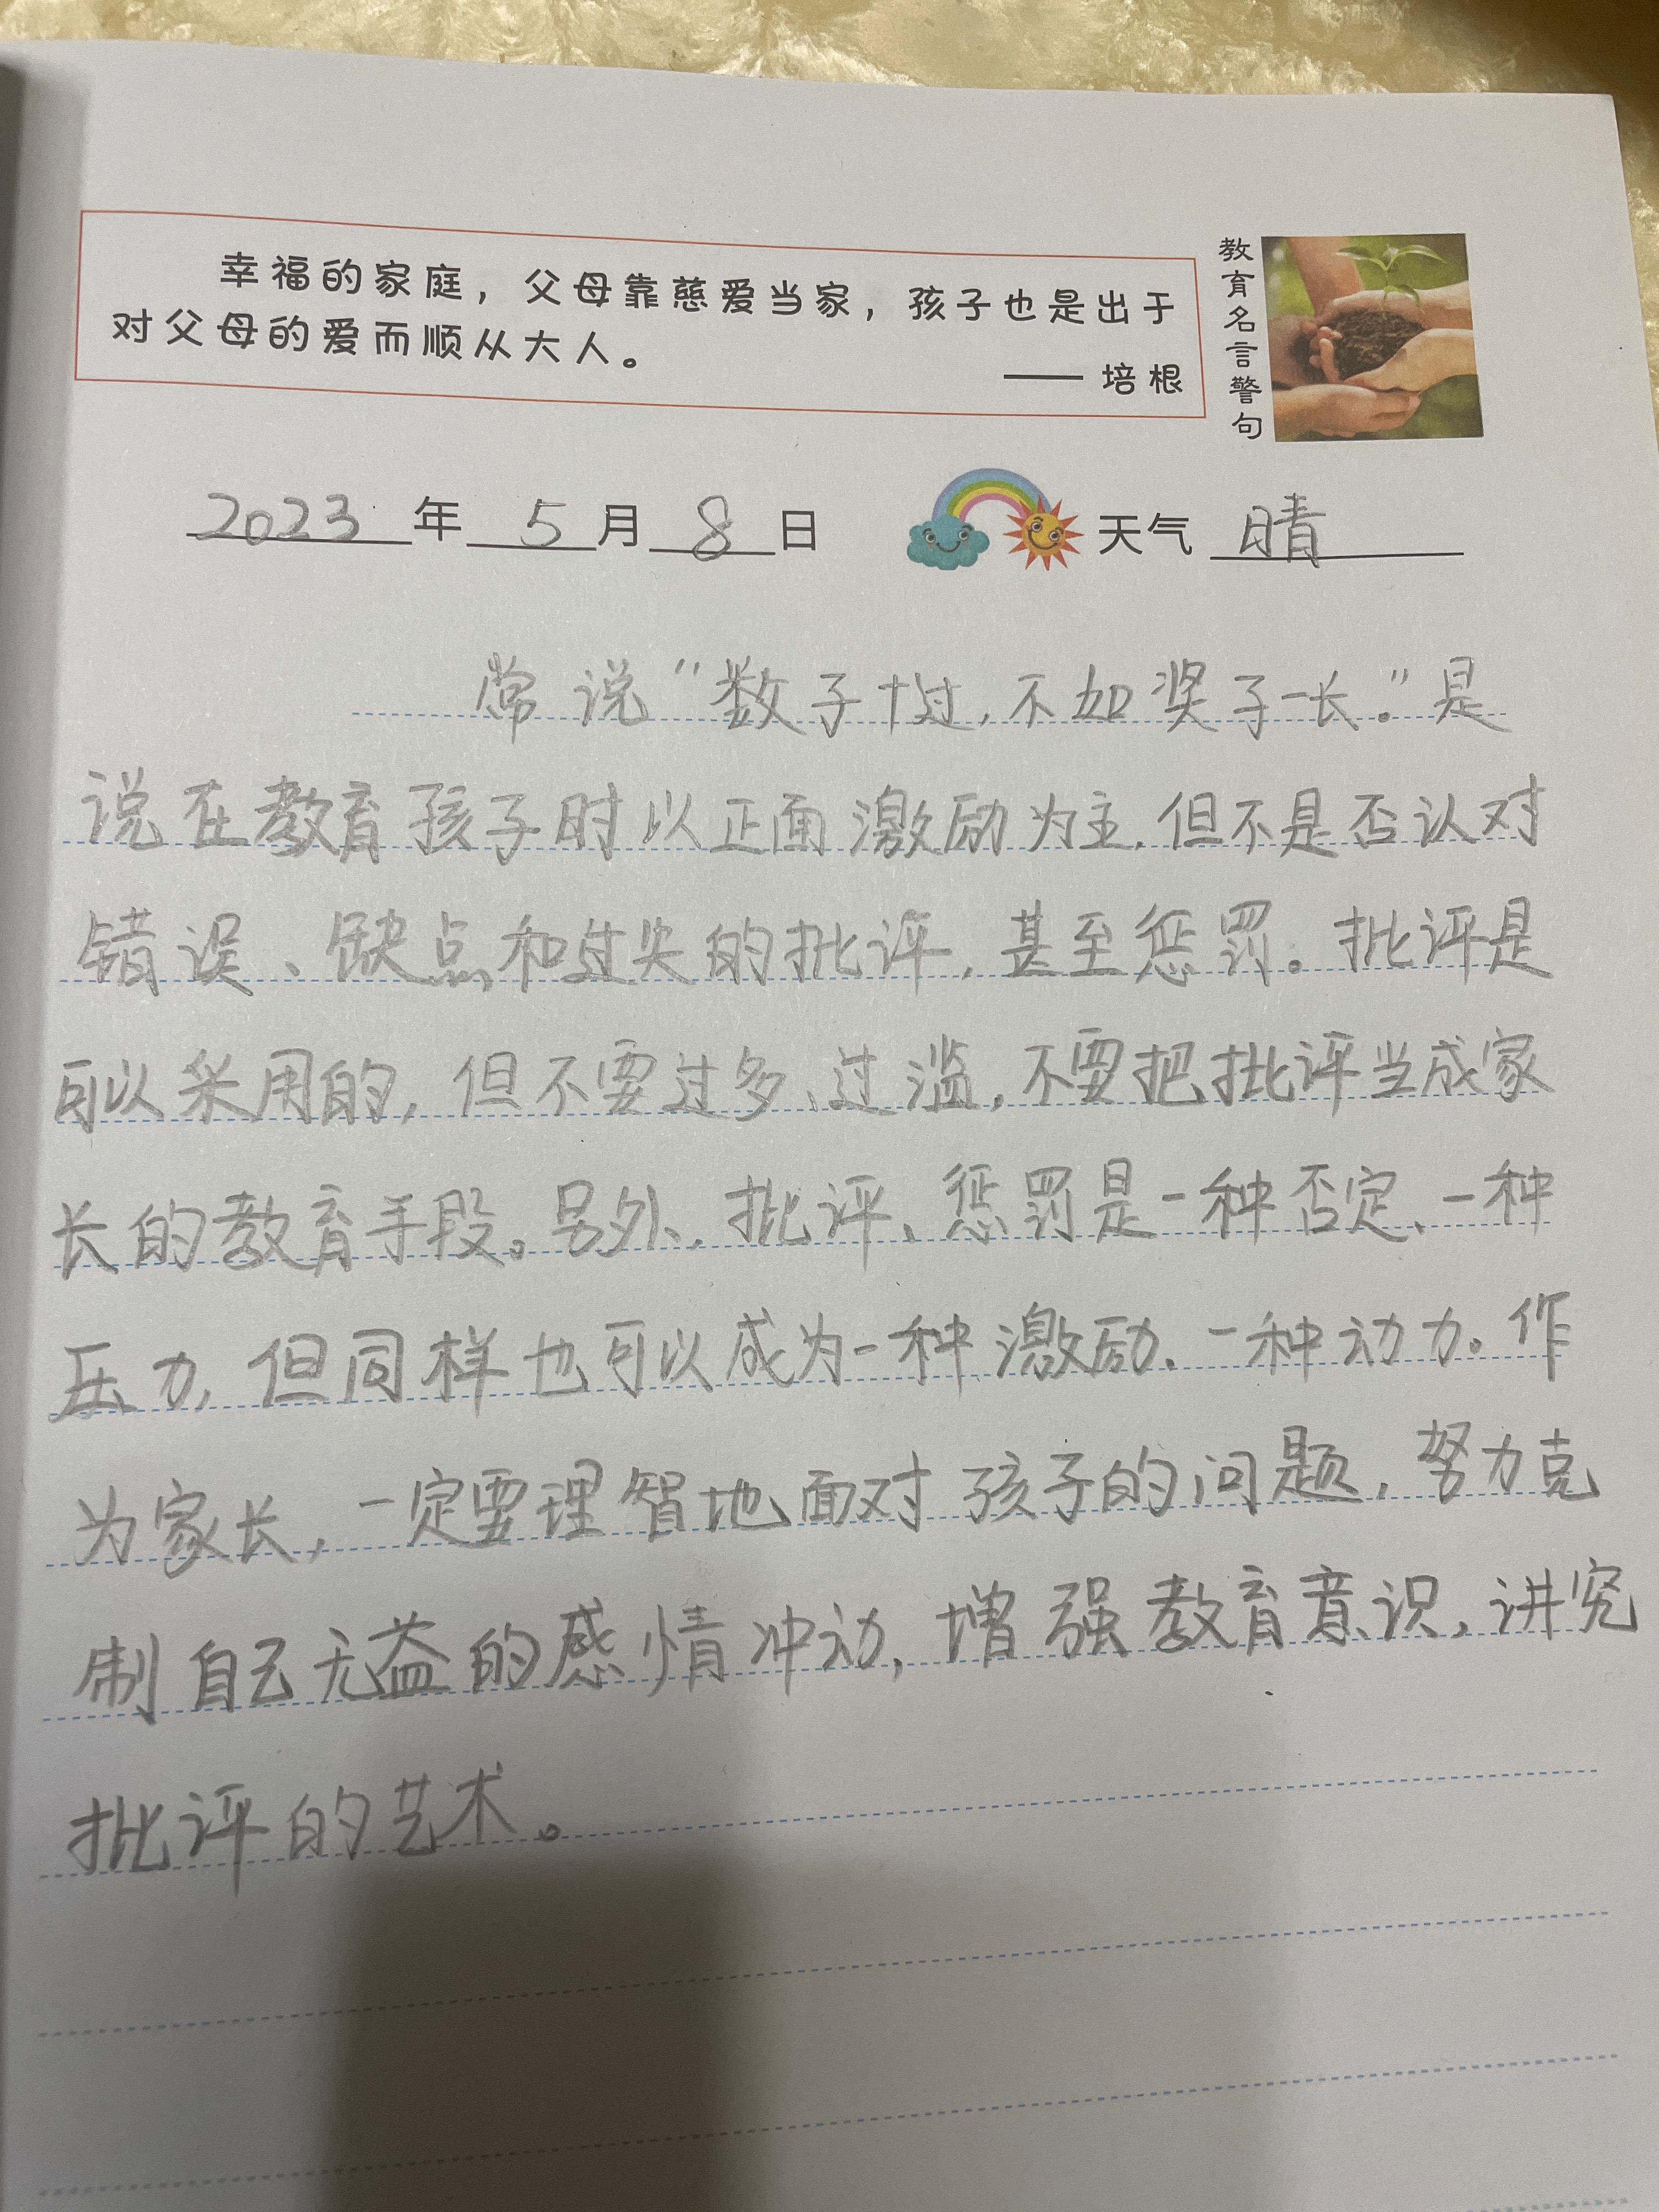 幸福的家庭，父母靠慈爱当家，孩子也是出于
对父母的爱而顺从大人。
—— 培根
教育名言警句
2023年5月8日 天气 晴
常说“数子十过，不如奖子一长。”是
说在教育孩子时以正面激励为主，但不是否认对
错误、缺点和过失的批评，甚至惩罚。批评是
可以采用的，但不要过多、过滥，不要把批评当成家
长的教育手段。另外，批评、惩罚是一种否定、一种
压力，但同样也可以成为一种激励、一种动力。作
为家长，一定要理智地面对孩子的问题，努力克
制自己无益的感情冲动，增强教育意识，讲究
批评的艺术。